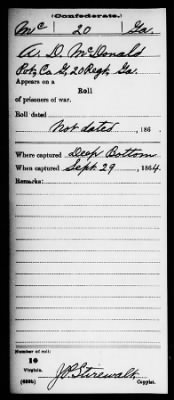 (Confederate.)
Mc | 20 | Ga.
A. D. McDonald
Pvt, Co. G, 20 Regt. Ga.
Appears on a
Roll
of prisoners of war.
Roll dated
Not dated, 186 .
Where captured Deep Bottom
When captured Sept. 29, 1864
Remarks:
Number of roll:
10
Virginia.
(639b) J. P. Stirewalt
Copyist.